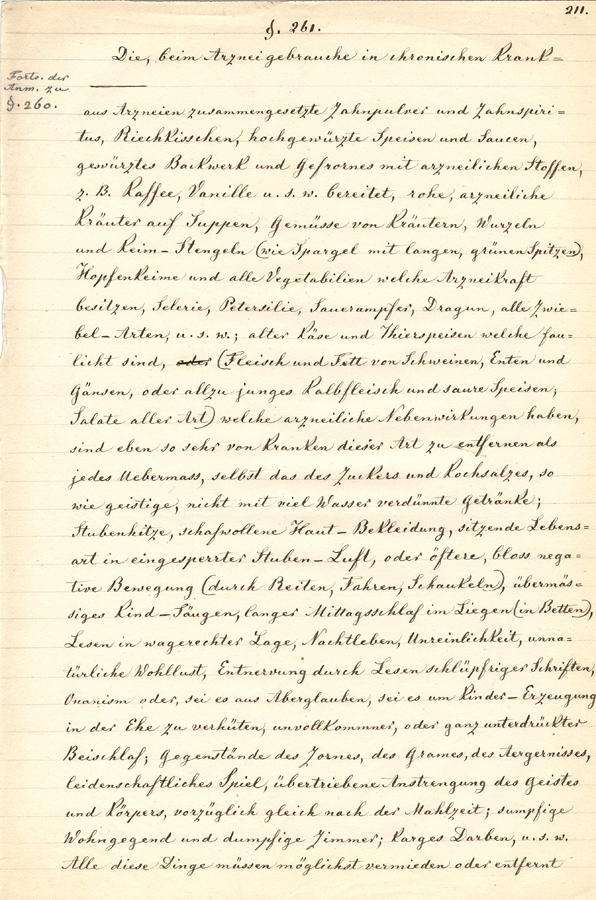 211.
§. 261.
Die, beim Arzneigebrauche in chronischen Krank=
Forts. der
Anm. zu
§. 260.
aus Arzneien zusammengesetzte Zahnpulver und Zahnspiri=
tus, Riechkisschen, hochgewürzte Speisen und Saucen,
gewürztes Backwerk und Gefrornes mit arzneilichen Stoffen,
z. B. Kaffee, Vanille u. s. w. bereitet, rohe, arzneiliche
Kräuter auf Suppen, Gemüsse von Kräutern, Wurzeln
und Keim-Stengeln (wie Spargel mit langen, grünen Spitzen),
Hopfenkeime und alle Vegetabilien welche Arzneikraft
besitzen, Selerie, Petersilie, Sauerampfer, Dragun, alle Zwie=
bel-Arten, u. s. w.; alter Käse und Thierspeisen welche fau=
licht sind, oder (Fleisch und Fett von Schweinen, Enten und
Gänsen, oder allzu junges Kalbfleisch und saure Speisen;
Salate aller Art) welche arzneiliche Nebenwirkungen haben,
sind eben so sehr von Kranken dieser Art zu entfernen als
jedes Uebermass, selbst das des Zuckers und Kochsalzes, so
wie geistige, nicht mit viel Wasser verdünnte Getränke;
Stubenhitze, schafwollene Haut-Bekleidung, sitzende Lebens=
art in eingesperrter Stuben-Luft, oder öftere, bloss nega=
tive Bewegung (durch Reiten, Fahren, Schaukeln), übermäs=
siges Kind-Säugen, langer Mittagsschlaf im Liegen (in Betten),
Lesen in wagerechter Lage, Nachtleben, Unreinlichkeit, unna=
türliche Wohllust, Entnervung durch Lesen schlüpfriger Schriften,
Onanism oder, sei es aus Aberglauben, sei es um Kinder-Erzeugung
in der Ehe zu verhüten, unvollkommner, oder ganz unterdrückter
Beischlaf; Gegenstände des Zornes, des Grames, des Aergernisses,
leidenschaftliches Spiel, übertriebene Anstrengung des Geistes
und Körpers, vorzüglich gleich nach der Mahlzeit; sumpfige
Wohngegend und dumpfige Zimmer; karges Darben, u. s. w.
Alle diese Dinge müssen möglichst vermieden oder entfernt